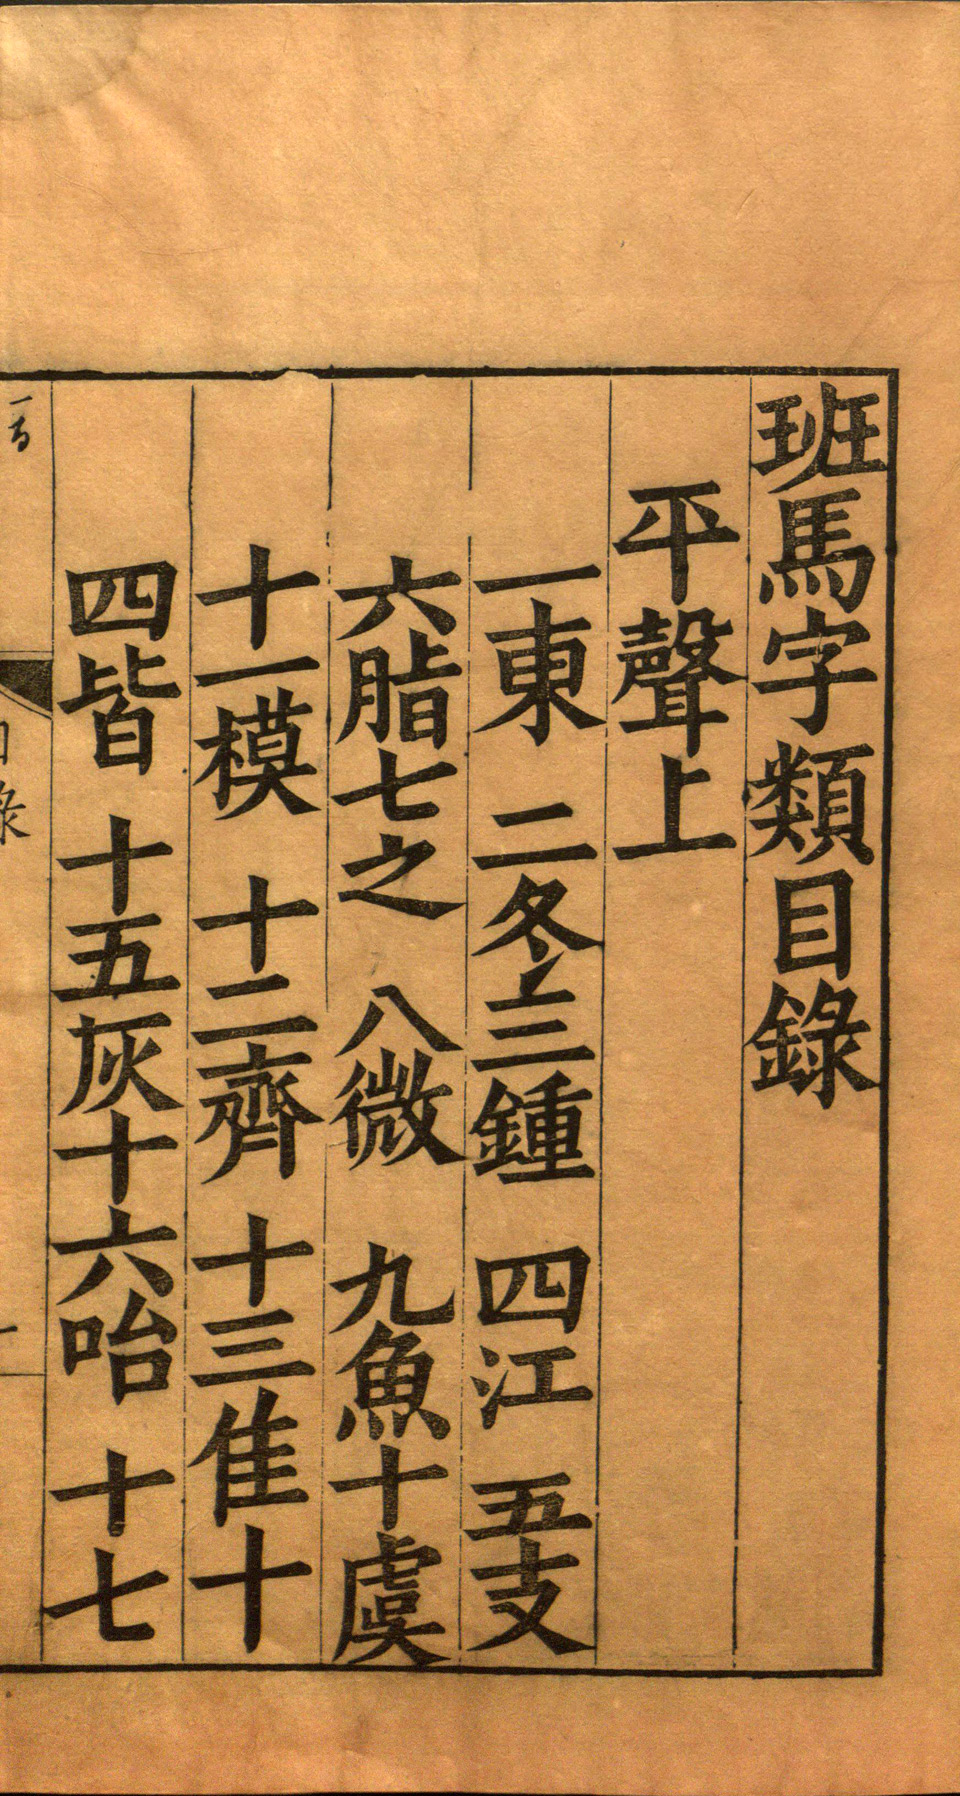 班馬字類目錄
平聲上
一東 二冬三鍾 四江 五支
六脂七之 八微 九魚十虞
十一模 十二齊 十三佳十
四皆 十五灰十六咍 十七